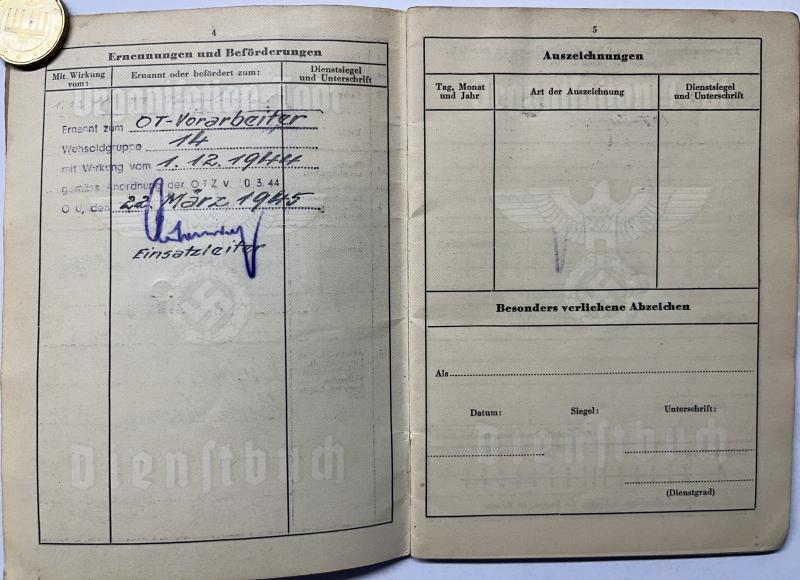 4
Ernennungen und Beförderungen
Mit Wirkung vom:
Ernannt oder befördert zum:
Dienstsiegel und Unterschrift
Ernannt zum OT-Vorarbeiter
Wehsoldgruppe 14
mit Wirkung vom 1.12.1944
gemäss Anordnung der OTZ v. 0.3.44
O U, den 22. März 1945
Einsatzleiter
Dienstbuch
5
Auszeichnungen
Tag, Monat und Jahr
Art der Auszeichnung
Dienstsiegel und Unterschrift
Besonders verliehene Abzeichen
Als
Datum: Siegel: Unterschrift:
Dienstbuch
(Dienstgrad)